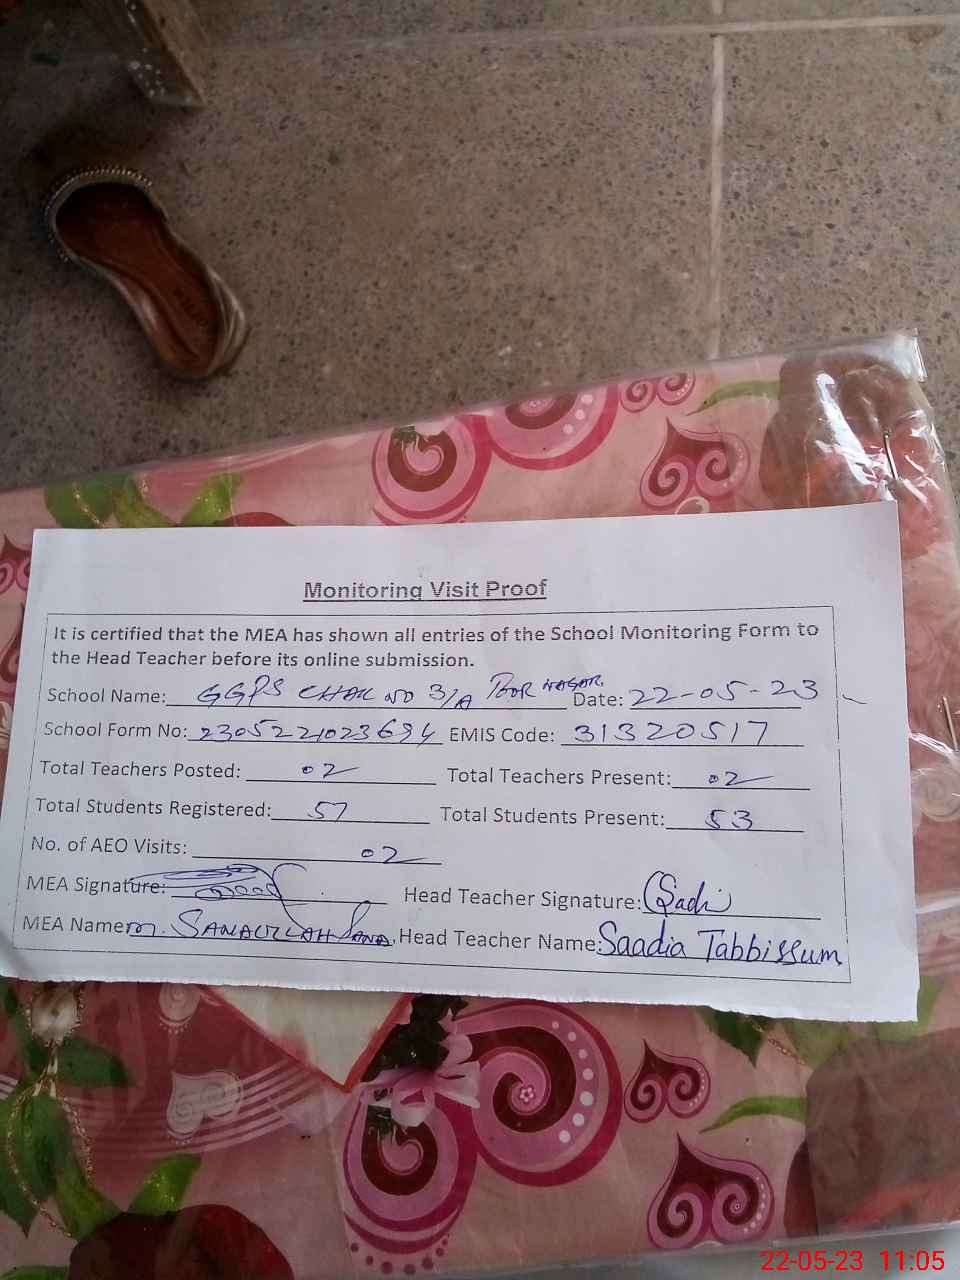 Monitoring Visit Proof
It is certified that the MEA has shown all entries of the School Monitoring Form to
the Head Teacher before its online submission.
School Name: GGPS CHAK NO 3/A NAGAR. Date: 22-05-23
School Form No: 2305221023694 EMIS Code: 31320517
Total Teachers Posted: 02 Total Teachers Present: 02
Total Students Registered: 57 Total Students Present: 53
No. of AEO Visits: 02
MEA Signature: Head Teacher Signature: Sadi
MEA Name: M. SANAULLAH Head Teacher Name: Saadia Tabbissum
22-05-23 11:05